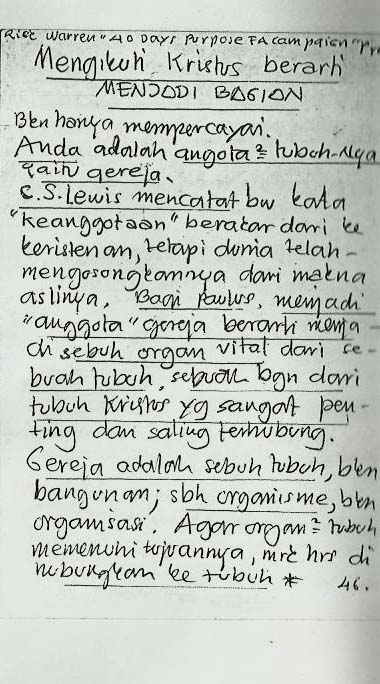 Rick Warren "40 Days Purpose FA campaign"
Mengikuti Kristus berarti
MENJADI BAGIAN
Bkn hanya mempercayai.
Anda adalah angota² tubuh-Nya
yaitu gereja.
C.S. Lewis mencatat bw kata
"keanggotaan" berakar dari ke
keristenan, tetapi dunia telah-
mengosongkannya dari makna
aslinya. Bagi Paulus, menjadi
"anggota" gereja berarti menja-
di sebuh organ vital dari se-
buah tubuh, sebuah bgn dari
tubuh Kristus yg sangat pen-
ting dan saling terhubung.
Gereja adalah sebuh tubuh, bkn
bangunan; sbh organisme, bkn
organisasi. Agar organ² tubuh
memenuhi tujuannya, mrk hrs di
hubungkan ke tubuh * 46.